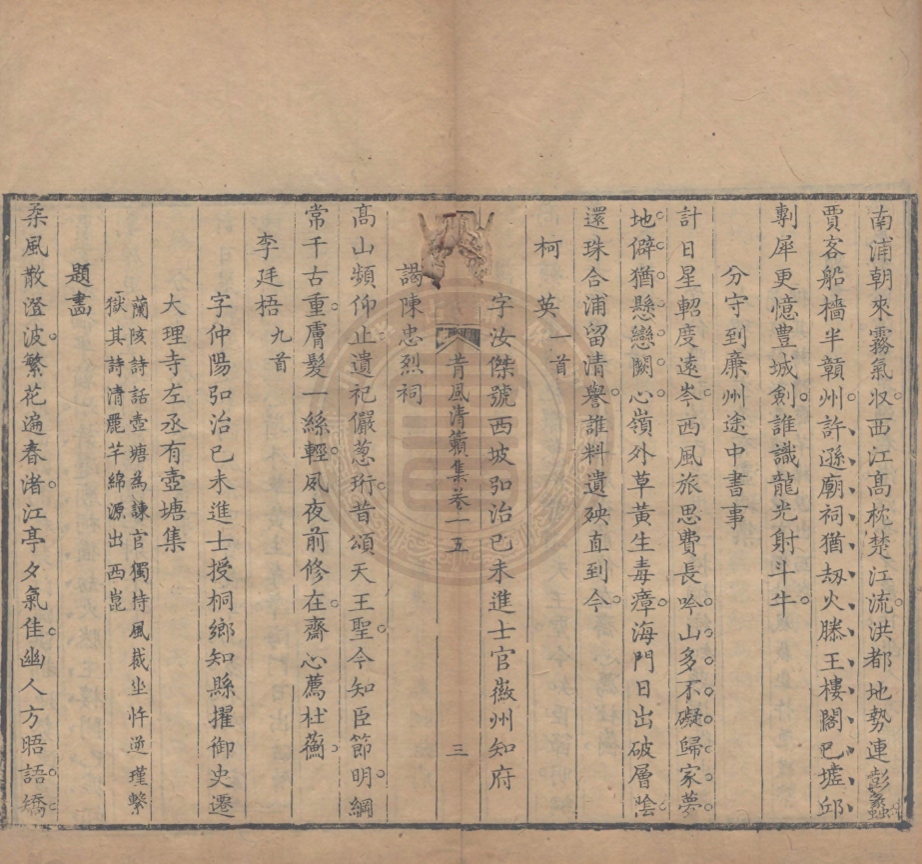 南浦朝來霧氣収西江髙枕楚江流洪都地勢連彭蠡
賈客船檣半贑州許遜廟祠猶刼火滕王樓閣巳墟邱
剸犀更憶豊城劍誰識龍光射斗牛
分守到廉州途中書事
計日星軺度遠岑西風旅思費長吟山多不礙歸家夢
地僻猶懸戀闕心嶺外草黃生毒瘴海門日出破層陰
還珠合浦留清譽誰料遺殃直到今
柯英一首
字汝傑號西坡弘治已未進士官徽州知府
莆風清籟集卷一五
三
謁陳忠烈祠
髙山頻仰止遺祀儼葱珩昔頌天王聖今知臣節明綱
常千古重膚髮一絲輕夙夜前修在齋心薦杜蘅
李廷梧九首
字仲陽弘治已未進士授桐鄉知縣擢御史遷
大理寺左丞有壺塘集
蘭陔詩話壺塘為諫官獨恃風裁坐忤逆瑾繫
獄其詩清麗芊綿源出西崑
題畫
柔風散澄波繁花遍春渚江亭夕氣佳幽人方晤語矯